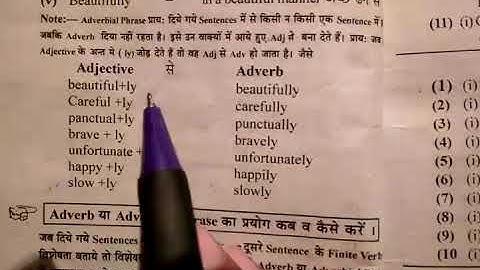 (v) Beautifully in a beautiful manner
Note:— Adverbial Phrase प्रायः दिये गये Sentences में से किसी न किसी एक Sentence में।
जबकि Adverb दिया नहीं रहता है। इसे उन वाक्यों में आये हुए Adj से बना देते हैं। प्रायः जब
Adjective के अन्त में ( ly) जोड़ देते हैं तो वह Adj से Adv हो जाता है। जैसे
Adjective से Adverb
beautiful+ly beautifully
Careful +ly carefully
panctual+ly punctually
brave + ly bravely
unfortunate + unfortunately
happy +ly happily
slow +ly slowly
Adverb या Adv rase का प्रयोग कब व कैसे करें ।
जब दिये गये Sentences दूसरे Sentence के Finite Verb
विशेषता बताये तो
(11) (i)
(1) (i)
(2) (i)
(3) (i)
(4) (i)
(5) (i)
(6) (i)
(7) (i)
(8) (i)
(9) (i)
(10 (i)